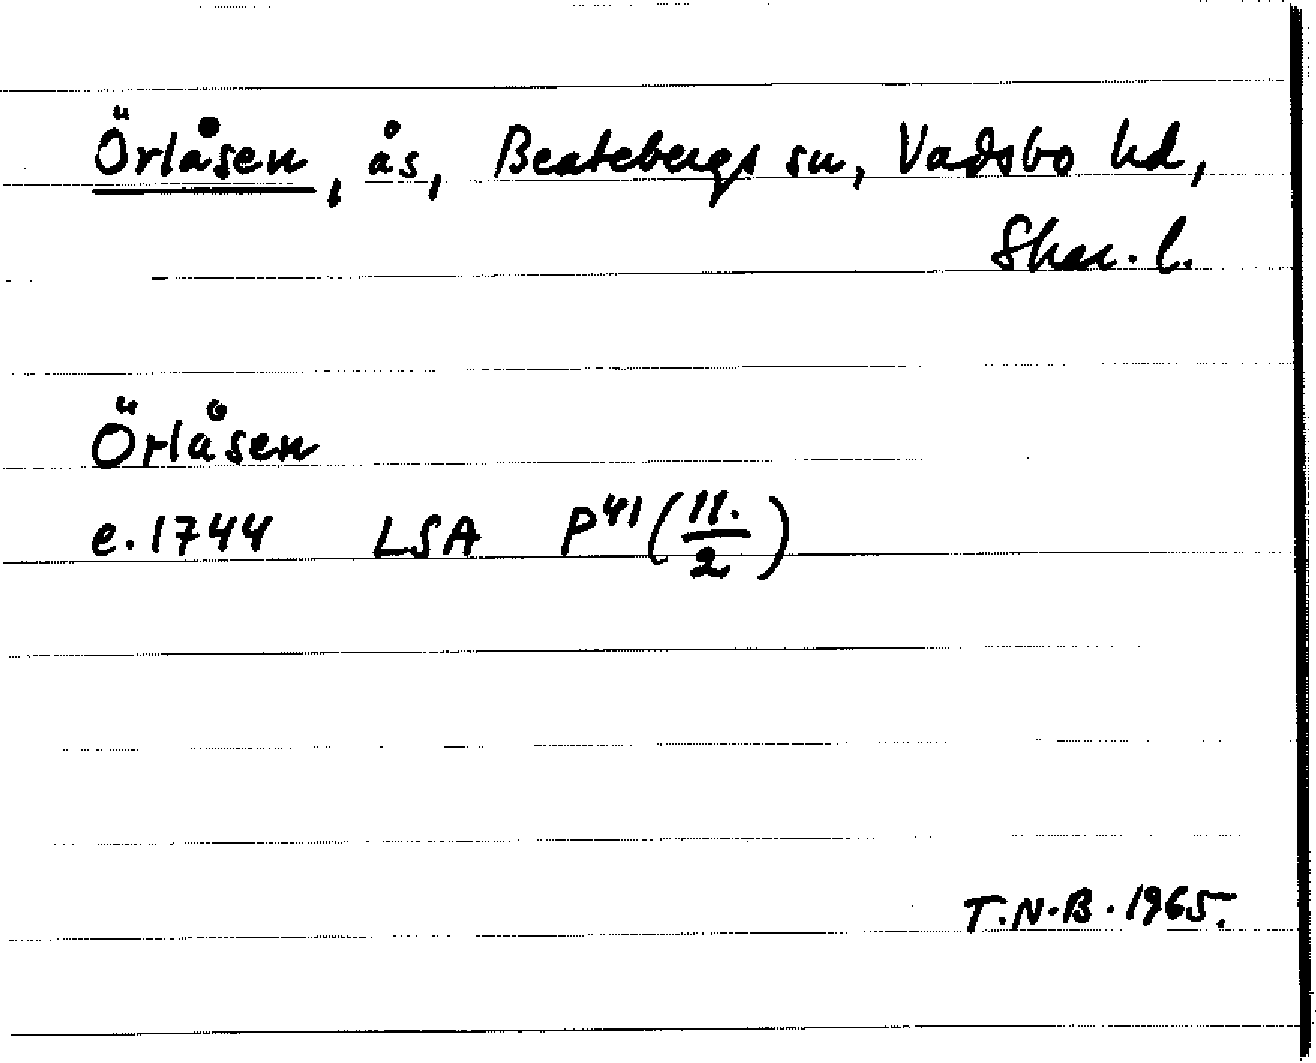 Örlåsen, ås, Beatebergs sn, Vadsbo hd,
Skar. l.
Örlåsen
e. 1744 LSA P41 (11./2)
T.N.B. 1965.